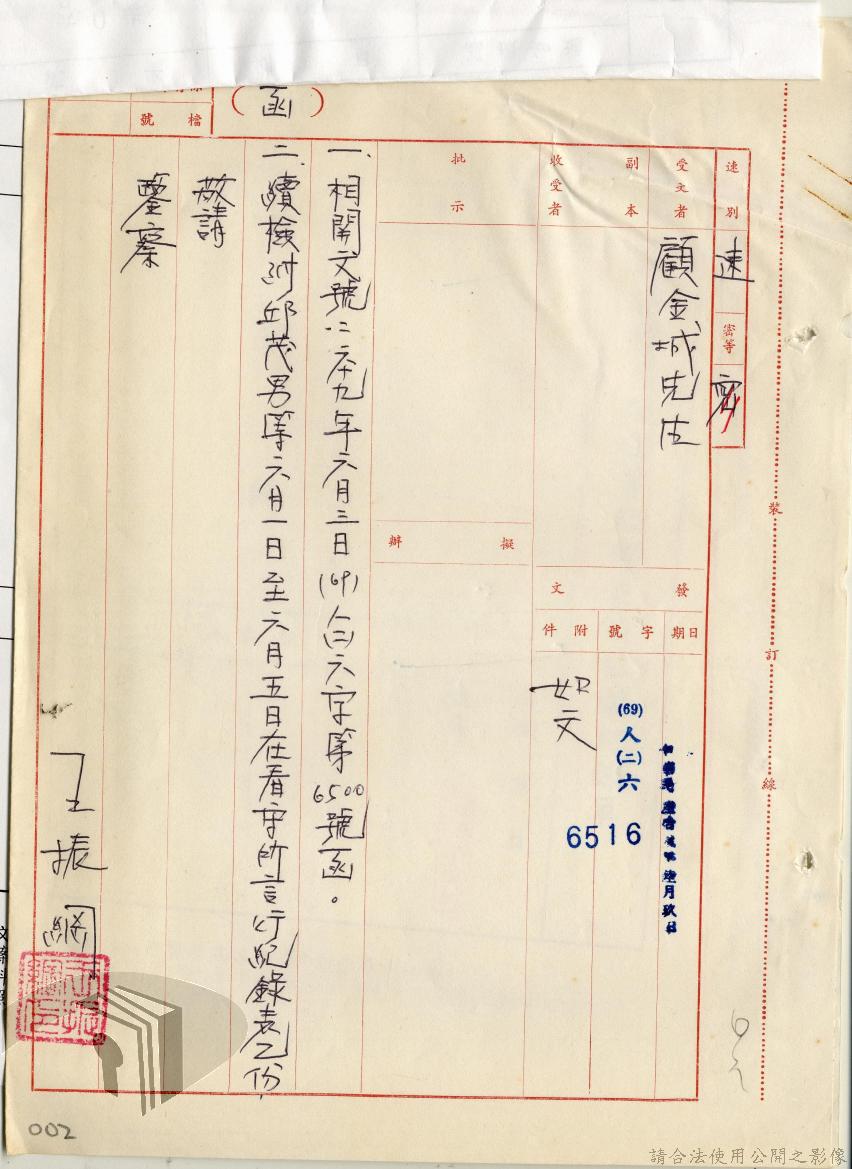 檔號
（函）
速別
速
密等
密
受文者
顧金城先生
副本
收受者
批示
擬辦
發文
日期
字號
附件
陸月玖日
(69)
人
(二)
六
6516
如文
一、相關文號：六十九年六月三日(69)人(二)六字第6500號函。
二、續檢附邱茂男等六月一日至六月五日在看守所言行紀錄表乙份，
敬請
鑒察
王振綱
裝
訂
線
002
請合法使用公開之影像